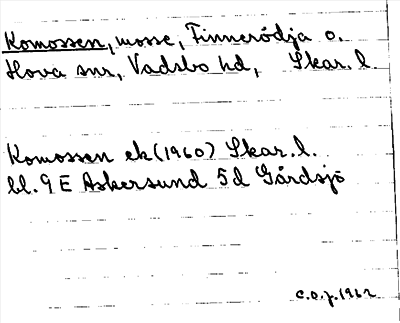 Komossen, mosse, Finnerödja o.
Hova snr, Vadsbo hd, Skar. l.
Komossen ek (1960) Skar. l.
bl. 9 E Askersund 5d Gårdsjö
C.O.J. 1962